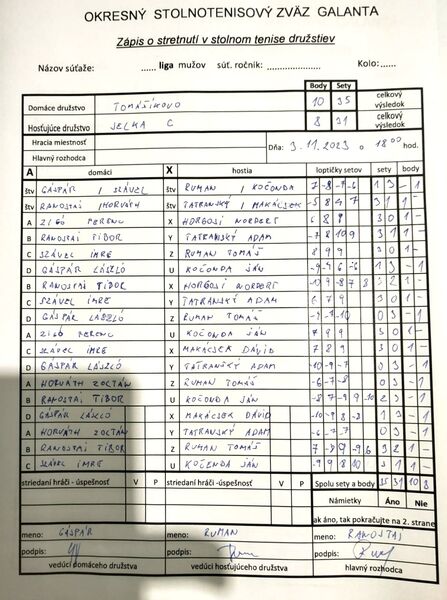 OKRESNÝ STOLNOTENISOVÝ ZVÄZ GALANTA
Zápis o stretnutí v stolnom tenise družstiev
Názov súťaže: ...... liga mužov súť. ročník: ..................... Kolo:......
Body Sety
Domáce družstvo TOMÁŠIKOVO 10 35 celkový výsledok
Hosťujúce družstvo SELKA C 8 31 celkový výsledok
Hracia miestnosť Dňa: 3.11.2023 o 18 00 hod.
Hlavný rozhodca
A domáci X hostia loptičky setov sety body
štv GÁSPÁR / SZÁVEL štv RUMAN / KOČONDA 1 3 - 1
štv RANOSTAJ / HORVÁTH štv TATRANSKÝ / MAKÁCSEK -5 8 4 7 3 1 1 -
A ZIGÓ FERENC X HORGOSI NORBERT 6 8 9 3 0 1 -
B RANOSTAJ TIBOR Y TATRANSKÝ ADAM -7 8 10 9 3 1 1 -
C SZÁVEL IMRE Z RUMAN TOMÁŠ 8 9 9 3 0 1 -
D GÁSPÁR LÁSZLÓ U KOČONDA JÁN -9 -4 6 -6 1 3 - 1
B RANOSTAJ TIBOR X HORGOSI NORBERT 3 2 1 -
C SZÁVEL IMRE Y TATRANSKÝ ADAM 6 7 9 3 0 1 -
D GÁSPÁR LÁSZLÓ Z RUMAN TOMÁŠ 0 3 - 1
A ZIGÓ FERENC U KOČONDA JÁN 9 9 3 0 1 -
C SZÁVEL IMRE X MAKÁCSEK DÁVID 7 8 9 3 0 1 -
D GÁSPÁR LÁSZLÓ Y TATRANSKÝ ADAM -10 -9 -7 0 3 - 1
A HORVÁTH ZOLTÁN Z RUMAN TOMÁŠ -6 -7 -8 0 3 - 1
B RANOSTAJ TIBOR U KOČONDA JÁN -8 -7 9 9 -10 2 3 - 1
D GÁSPÁR LÁSZLÓ X MAKÁCSEK DÁVID 1 3 - 1
A HORVÁTH ZOLTÁN Y TATRANSKÝ ADAM -6 -7 -7 0 3 - 1
B RANOSTAJ TIBOR Z RUMAN TOMÁŠ 3 2 1 -
C SZÁVEL IMRE U KOČONDA JÁN -9 9 8 10 3 1 1 -
striedaní hráči - úspešnosť V P striedaní hráči - úspešnosť V P Spolu sety a body 35 31 10 8
Námietky Áno Nie
ak áno, tak pokračujte na 2. strane
meno: GÁSPÁR meno: RUMAN meno: RANOSTAJ
podpis: podpis: podpis:
vedúci domáceho družstva vedúci hosťujúceho družstva hlavný rozhodca